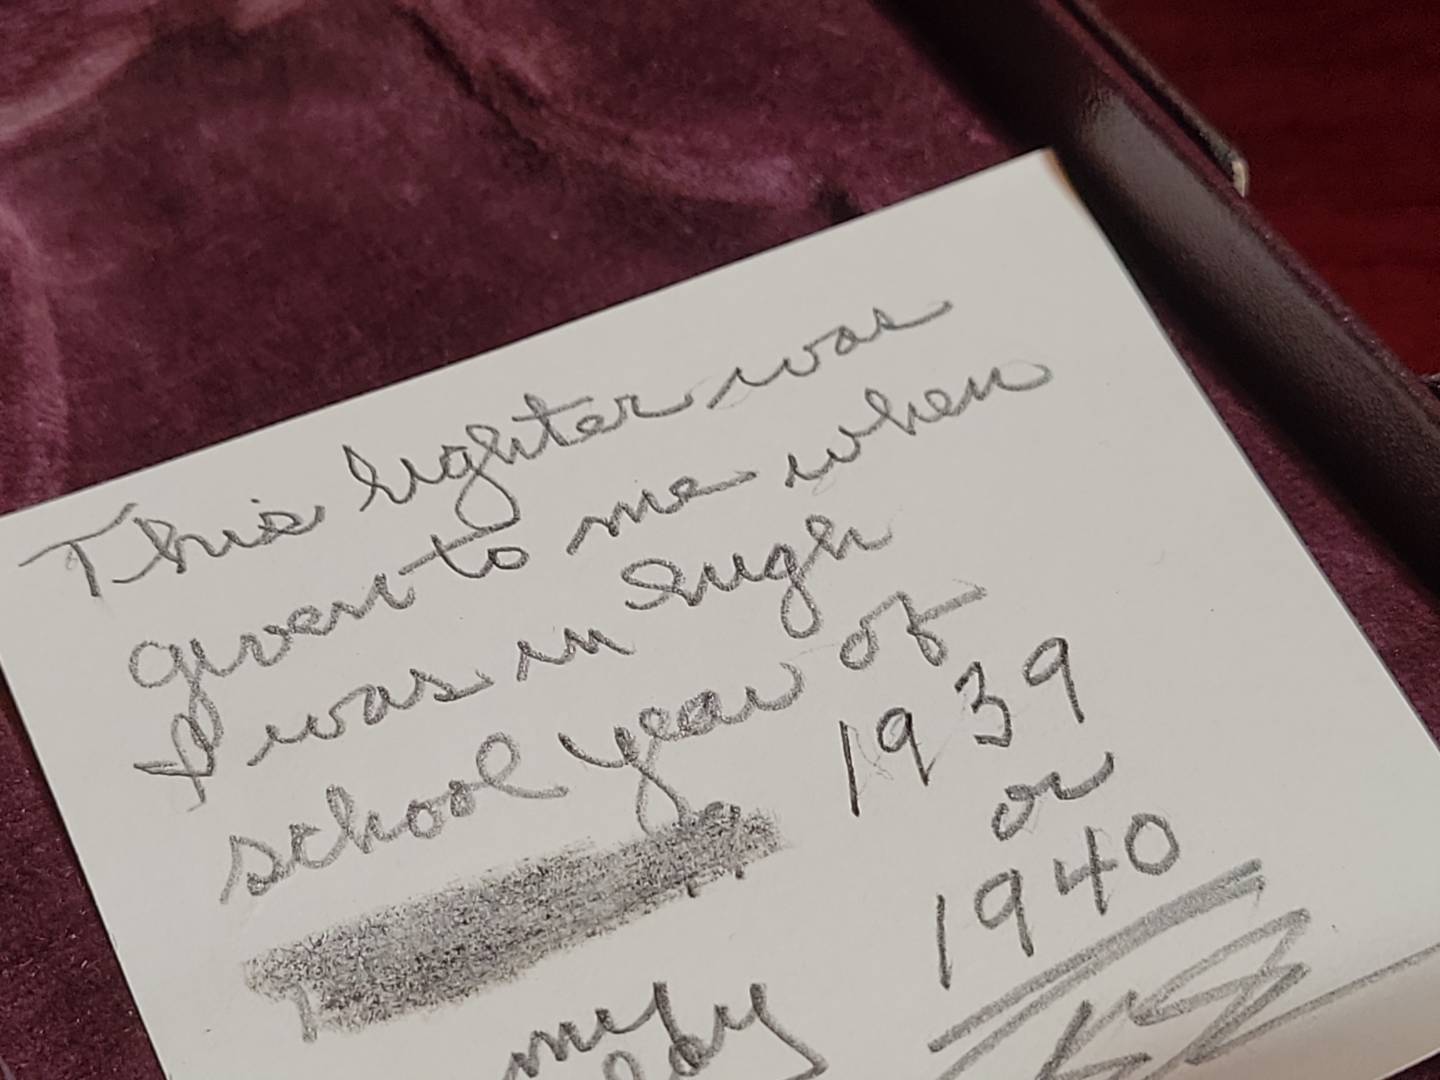 This lighter was
given to me when
I was in high
school year of
1939
or
1940
my